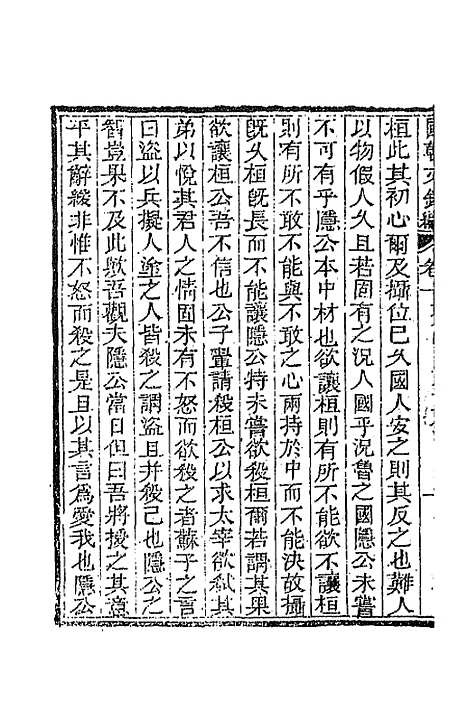 國朝文錄 卷一
桓此其初心爾及攝位已久國人安之則其反之也難人
以物假人久且若固有之況人國乎況魯之國隱公未嘗
不可有乎隱公本中材也欲讓桓則有所不能欲不讓桓
則有所不敢不能與不敢之心兩持於中而不能決故攝
旣久桓旣長而不能讓隱公特未嘗欲殺桓爾若謂其果
欲讓桓公吾不信也公子翬請殺桓公以求太宰欲弑其
弟以悅其君人之情固未有不怒而欲殺之者蘇子之言
曰盜以兵擬人塗之人皆殺之謂盜且并殺己也隱公之
智豈果不及此歟吾觀夫隱公當日但曰吾將授之其意
平其辭緩非惟不怒而殺之是且以其言爲愛我也隱公